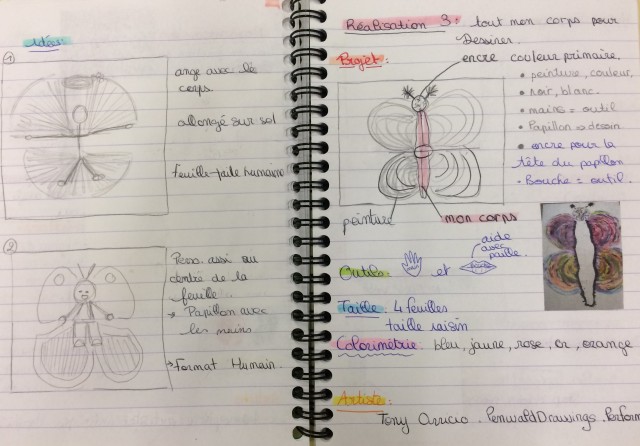 Idées:
1
ange avec le
corps
allongé sur sol
Feuille taille humaine
2
Perso. assi au
centre de la
feuille.
→ Papillon avec
les mains
→ Format Humain.
Réalisation 3: tout mon corps pour
Dessiner.
Projet:
encre couleur primaire.
• peinture, couleur,
• noir, blanc.
• mains = outil
• Papillon => dessin
• encre pour la
tête du papillon
• Bouche = outil.
peinture
mon corps
Outils:
et
aide
avec
paille.
Taille: 4 feuilles
taille raisin
Colorimétrie: bleu, jaune, rose, or, orange
Artiste:
Tony Orrico . Penwald Drawings . Perform